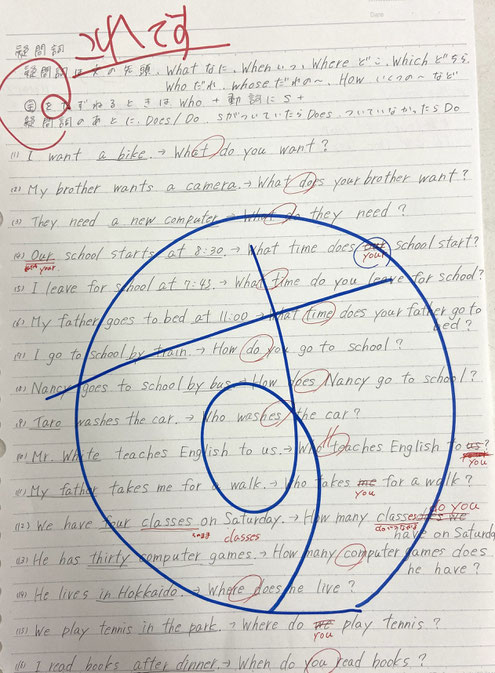 Date
これです
疑問詞
疑問詞は文の先頭、What なに、When いつ、Where どこ、Which どちら
Who だれ、whose だれの〜、How いくつの〜 など
ときは Who + 動詞に S +
疑問詞のあとに、Does/Do、Sがついていたら Does、ついていなかったら Do
(1) I want a bike. → What do you want?
(2) My brother wants a camera. → What does your brother want?
(3) They need a new computer → What do they need?
(4) Our school starts at 8:30. → What time does our school start?
your
(5) I leave for school at 7:45. → What time do you leave for school?
(6) My father goes to bed at 11:00 → What time does your father go to
bed?
(7) I go to school by train. → How do you go to school?
(8) Nancy goes to school by bus → How does Nancy go to school?
(9) Taro washes the car. → Who washes the car?
(10) Mr. White teaches English to us. → Who teaches English to us?
you
(11) My father takes me for a walk. → Who takes me for a walk?
you
do you
(12) We have four classes on Saturday. → How many classes
classes
have on Saturd
(13) He has thirty computer games. → How many computer games does
he have?
(14) He lives in Hokkaido. → Where does he live?
(15) We play tennis in the park. → Where do we play tennis?
you
(16) I read books after dinner. → When do you read books?